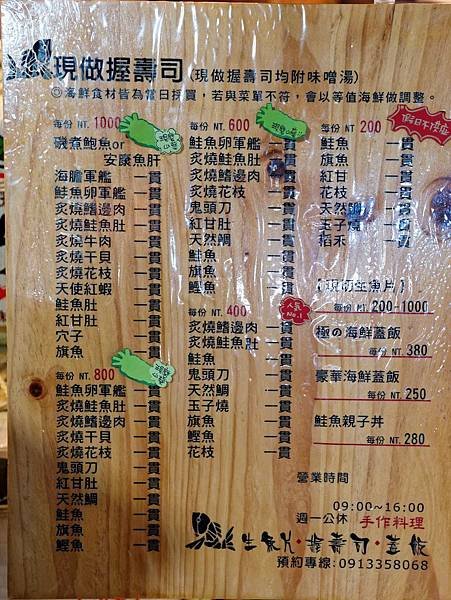 現做握壽司(現做握壽司均附味噌湯)
◎海鮮食材皆為當日採買，若與菜單不符，會以等值海鮮做調整。
每份 NT. 1000
磯煮鮑魚or
安康魚肝
海膽軍艦 一貫
鮭魚卵軍艦 一貫
炙燒鰭邊肉 一貫
炙燒鮭魚肚 一貫
炙燒牛肉 一貫
炙燒干貝 一貫
炙燒花枝 一貫
天使紅蝦 一貫
鮭魚肚 一貫
紅甘肚 一貫
穴子 一貫
旗魚 一貫
每份 NT. 800
鮭魚卵軍艦 一貫
炙燒鮭魚肚 一貫
炙燒鰭邊肉 一貫
炙燒干貝 一貫
炙燒花枝 一貫
鬼頭刀 一貫
紅甘肚 一貫
天然鯛 一貫
鮭魚 一貫
旗魚 一貫
鰹魚 一貫
每份 NT. 600
鮭魚卵軍艦 一貫
炙燒鮭魚肚 一貫
炙燒鰭邊肉 一貫
炙燒花枝 一貫
鬼頭刀 一貫
紅甘肚 一貫
天然鯛 一貫
鮭魚 一貫
旗魚 一貫
鰹魚 一貫
每份 NT. 400
人氣
No.1
炙燒鰭邊肉 一貫
炙燒鮭魚肚 一貫
鮭魚 一貫
鬼頭刀 一貫
天然鯛 一貫
玉子燒 一貫
旗魚 一貫
鰹魚 一貫
花枝 一貫
每份 NT. 200
假日不供應
鮭魚 一貫
旗魚 一貫
紅甘 一貫
花枝 一貫
天然鯛 一貫
玉子燒 一貫
稻禾 一貫
【現切生魚片】
每份 NT. 200-1000
極の海鮮蓋飯
每份 NT. 380
豪華海鮮蓋飯
每份 NT. 250
鮭魚親子丼
每份 NT. 280
營業時間
09:00~16:00
週一公休 手作料理
生魚片·握壽司·蓋飯
預約專線:0913358068